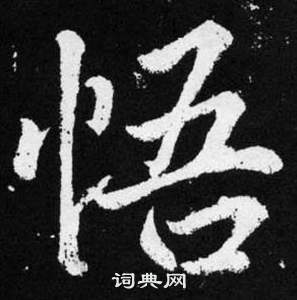 悟
词典网